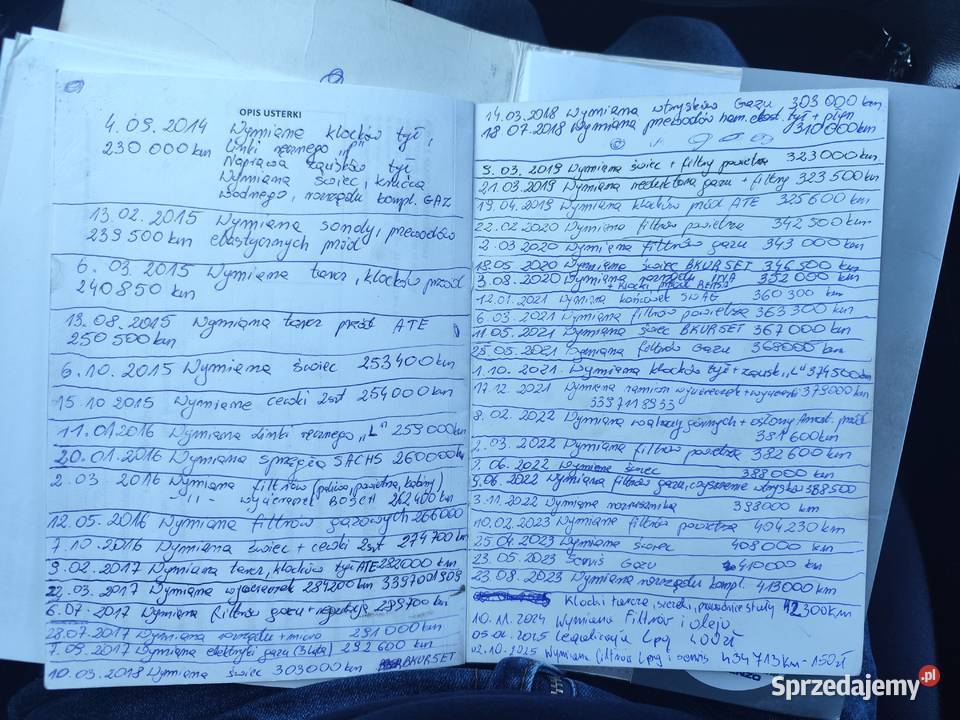 OPIS USTERKI
4.09.2014 Wymiana klocków tył,
230 000 km linki ręcznego „P"
Naprawa zacisków tył
Wymiana świec, króćca
wodnego, rozrządu kompl. GAZ
13.02.2015 Wymiana sondy, przewodów
239 500 km elastycznych przód
6.03.2015 Wymiana tarcz, klocków przód
240 850 km
13.08.2015 Wymiana tarcz przód ATE
250 500 km
6.10.2015 Wymiana świec 253 400 km
15.10 2015 Wymiane cewki 2szt 254 000 km
11.01.2016 Wymiana linki ręcznego „L" 259 000 km
20.01.2016 Wymiana sprzęgła SACHS 260 000 km
2.03 2016 Wymiana filtrów (paliwa, powietrza, kabiny)
-11- wycieraczek BOSCH 262 400 km
12.05.2016 Wymiana filtrów gazowych 266 000
7.10.2016 Wymiana świec + cewki 2szt 274 700 km
9.02.2017 Wymiana tarcz, klocków tył ATE 282 000 km
22.03.2017 Wymiana wycieraczek 284 200 km 3397001909
6.07.2017 Wymiana filtrów gazu + regulacja 289 700 km
28.07.2017 Wymiana rozrządu + micro 291 000 km
7.09.2017 Wymiana elektryki gazu (3 lata) 292 600 km
10.03.2018 Wymiana świec 303 000 km BKUR5ET
14.03.2018 Wymiana wtrysków Gazu 303 000 km
18 07.2018 Wymiana przewodów ham. elast. tył + płyn
310 000 km
9.03.2019 Wymiana świec + filtry powietrza 323 000 km
21.03.2019 Wymiana reduktora gazu + filtry 323 500 km
19.04.2019 Wymiana klocków przód ATE 325 600 km
22.02.2020 Wymiana filtrów powietrza 342 500 km
2.03.2020 Wymiana filtrów gazu 343 000 km
18.05.2020 Wymiana świec BKUR5ET 346 500 km
3.08.2020 Wymiana rozrządu INA 352 000 km
+ klocki przód
12.01.2021 Wymiana końcówek SWAG 360 300 km
6.03.2021 Wymiana filtrów powietrza 363 300 km
11.05.2021 Wymiana świec BKUR5ET 367 000 km
25.05.2021 Wymiana filtrów Gazu 368 000 km
1.10.2021. Wymiana klocków tył + zacisk „L" 374 500 km
17.12.2021 Wymiana ramion wycieraczek + wycieraczki 379 000 km
3397118933
8.02.2022 Wymiana wahaczy górnych + osłony Amort. przód
381 600 km
2.03.2022 Wymiana filtrów powietrza 382 600 km
7.06.2022 Wymiana świec 388 000 km
9.06.2022 Wymiana filtrów gazu, czyszczenie wtrysków 388 500
3.11.2022 Wymiana rozrusznika 398 000 km
10.02.2023 Wymiane filtrów powietrza 404 230 km
25.04.2023 Wymiana świec 408 000 km
23.05.2023 Serwis Gazu 410 000 km
23.08.2023 Wymiana rozrządu kompl. 413 000 km
Klocki tarcze, szczęki, prowadnice 300 km
10.11.2024 Wymiana Filtrów i oleju
05.04.2025 Legalizacja Lpg
02.10.2025 Wymiana filtrów Lpg i serwis 434 713 km - 150 zł
Sprzedajemy.pl